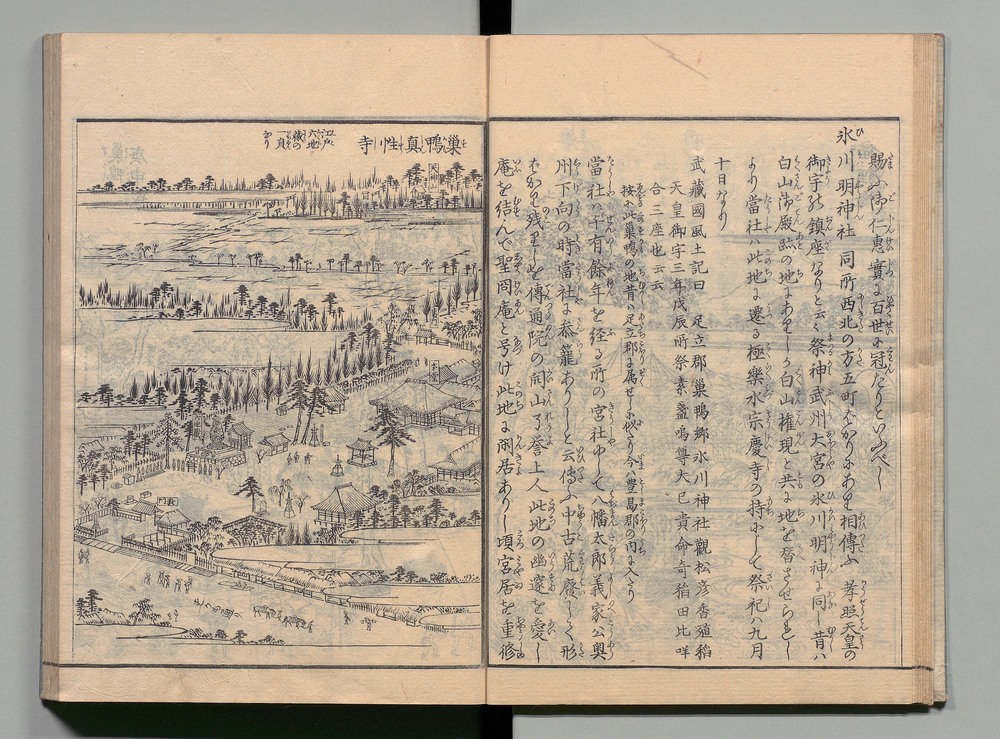 賜ふ御仁惠實に百世に冠たりといふべし
氷川明神社 同所西北の方五町ばかりにあり相傳ふ 孝照天皇の
御宇の鎮座なりと云々祭神武州大宮の氷川明神に同し昔ハ
白山御殿跡の地にありしか白山権現と共に地を替させられし
より當社ハ此地に遷る極樂水宗慶寺の持にして祭祀ハ九月
十日なり
武藏國風土記曰 足立郡巢鴨鄉氷川神社觀松彥香殖稲
天皇御宇三年戊辰所祭素盞嗚尊大己貴命奇稲田比咩
合三座也云云
按に此巢鴨の地昔ハ足立郡に属せしにや今ハ豊島郡の内に入たり
當社ハ千有餘年を経る所の宮社にして八幡太郎義家公奥
州下向の時當社に参籠ありしと云傳ふ中古荒廢して形
はかり残りしを傳通院の開山了誉上人此地の幽邃を愛し
庵を結んで聖冏庵と号け此地に閑居ありし頃宮居を重修
巢鴨真性寺
江戸
六地
蔵の
一員
なり